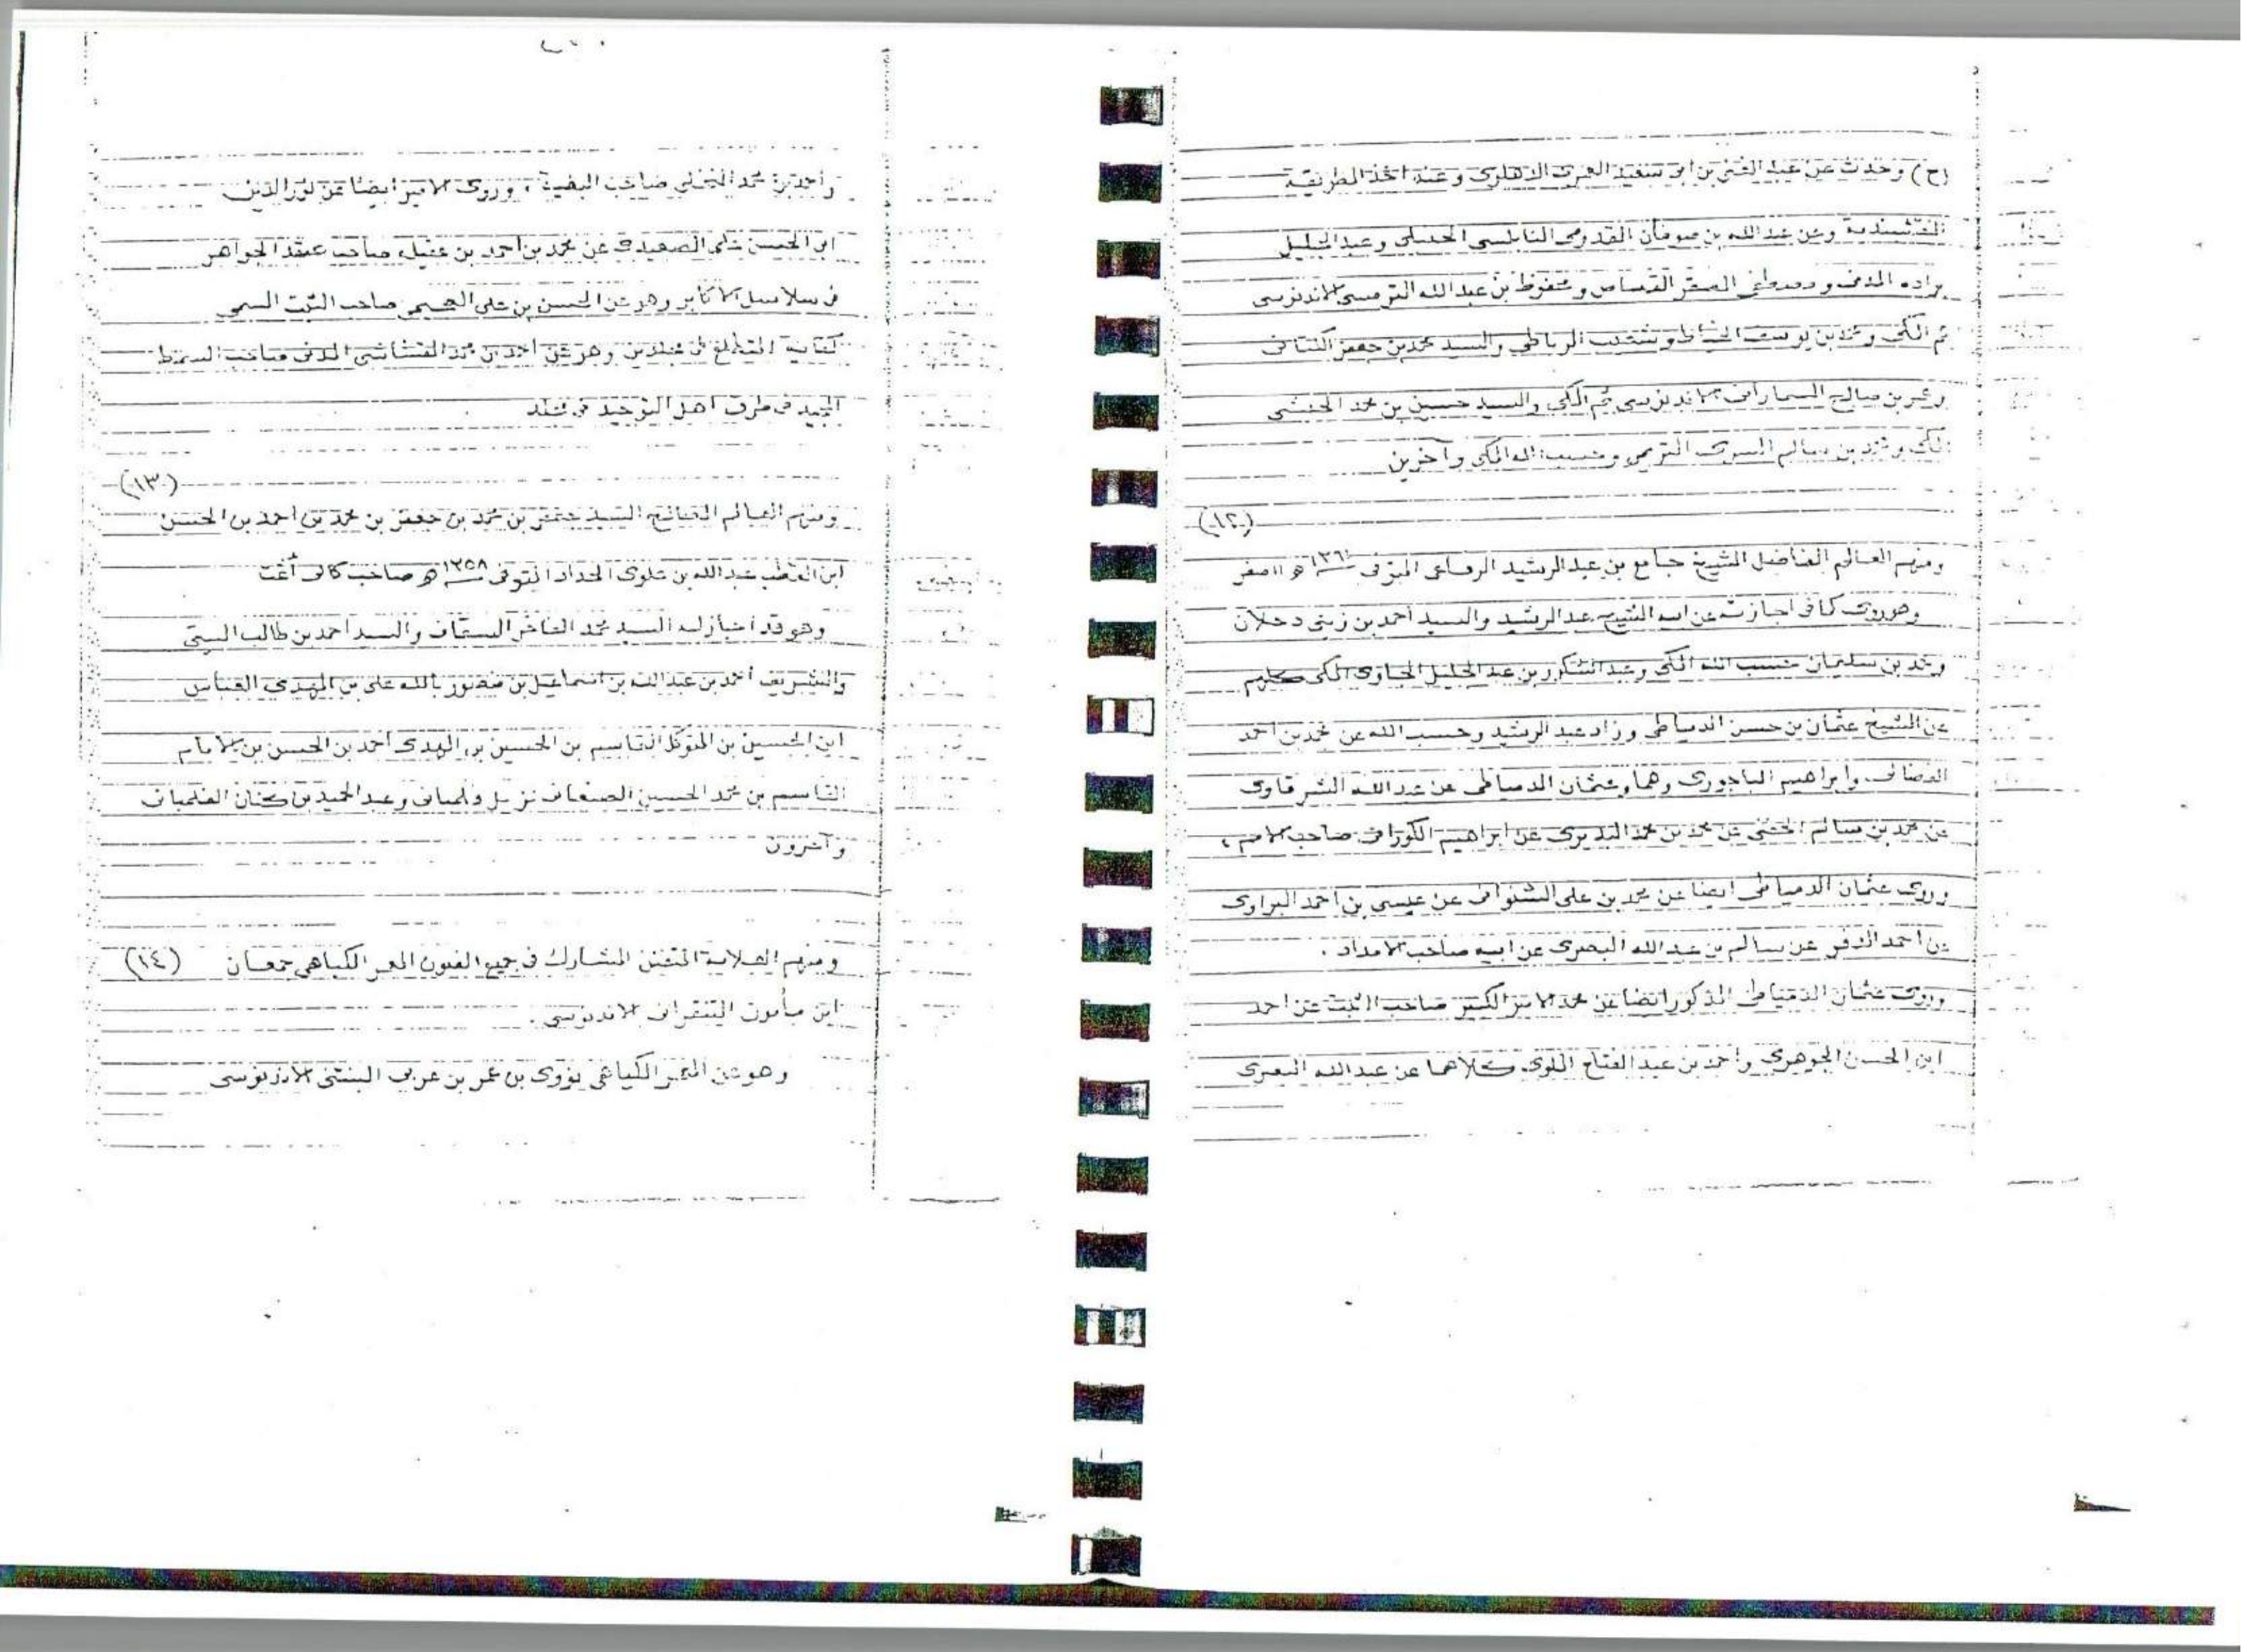 (ح) وحدث عن عبد الغني بن ابي سعيد العمري الدهلوي وعنه اخذ الطريقة
النقشبندية وعن عبد الله بن صوفان القدومي النابلسي الحنبلي وعبد الجليل
براده المدني و العفر القصاص و محفوظ بن عبد الله الترمسي الاندنوسي
ثم المكي ومحمد بن يوسف الخياط وشعيب الرباطي والسيد محمد بن جعفر الكتاني
وعمر بن صالح السماراني الاندنوسي ثم المكي والسيد حسين بن محمد الحبشي
المكي و بن سالم السري التريمي وحسب الله المكي وآخرين
(١٢)
ومنهم العالم الفاضل الشيخ جامع بن عبد الرشيد الرفاعي المتوفى ١٣٦١ هـ ١١ صفر
وهو يروي كما في اجازته عن ابيه الشيخ عبد الرشيد والسيد أحمد بن زيني دحلان
ومحمد بن سليمان حسب الله المكي وعبد الشكور بن عبد الجليل الجاوي المكي كلهم
عن الشيخ عثمان بن حسن الدمياطي وزاد عبد الرشيد وحسب الله عن محمد بن احمد
وابراهيم الباجوري وهما وعثمان الدمياطي عن عبد الله الشرقاوي
عن محمد بن سالم الحفني عن محمد بن محمد البديري عن ابراهيم الكوراني صاحب الامم ،
وروى عثمان الدمياطي ايضا عن محمد بن علي الشنواني عن عيسى بن احمد البراوي
عن أحمد الدفري عن سالم بن عبد الله البصري عن ابيه صاحب الامداد .
وروى عثمان الدمياطي المذكور ايضا عن محمد الامير الكبير صاحب الثبت عن احمد
ابن الحسن الجوهري وأحمد بن عبد الفتاح الملوي كلاهما عن عبد الله البصري
وأحمد بن محمد النخلي صاحب البغية ، وروى الامير ايضا عن نور الدين
ابي الحسن علي الصعيدي عن محمد بن أحمد بن عقيلة صاحب عقد الجواهر
في سلاسل الاكابر وهو عن الحسن بن علي العجيمي صاحب الثبت المسمى
كفاية المتطلع في مجلدين وهو عن أحمد بن محمد القشاشي المدني صاحب السمط
المجيد في طرق اهل التوحيد في مجلد
(١٣)
ومنهم العالم السيد جعفر بن محمد بن جعفر بن محمد بن أحمد بن الحسن
ابن القطب عبد الله بن علوي الحداد المتوفى ١٣٥٨ هـ صاحب
وهو قد أجاز له السيد محمد الفاخر السقاف والسيد احمد بن طالب
والشريف أحمد بن عبد الله بن اسماعيل بن منصور بالله علي بن المهدي العباس
ابن الحسين بن المتوكل القاسم بن الحسين بن المهدي أحمد بن الحسن بن الامام
القاسم بن محمد الحسيني الصنعاني نزيل فلمبان وعبد الحميد بن كنان الفلمباني
وآخرون
ومنهم العلامة المتفنن المشارك في جميع الفنون المعمر الكياهي جمعان (١٤)
ابن مأمون التنقراني الاندنوسي .
وهو عن المعمر الكياهي نووي بن عمر بن عربي البنتني الاندنوسي